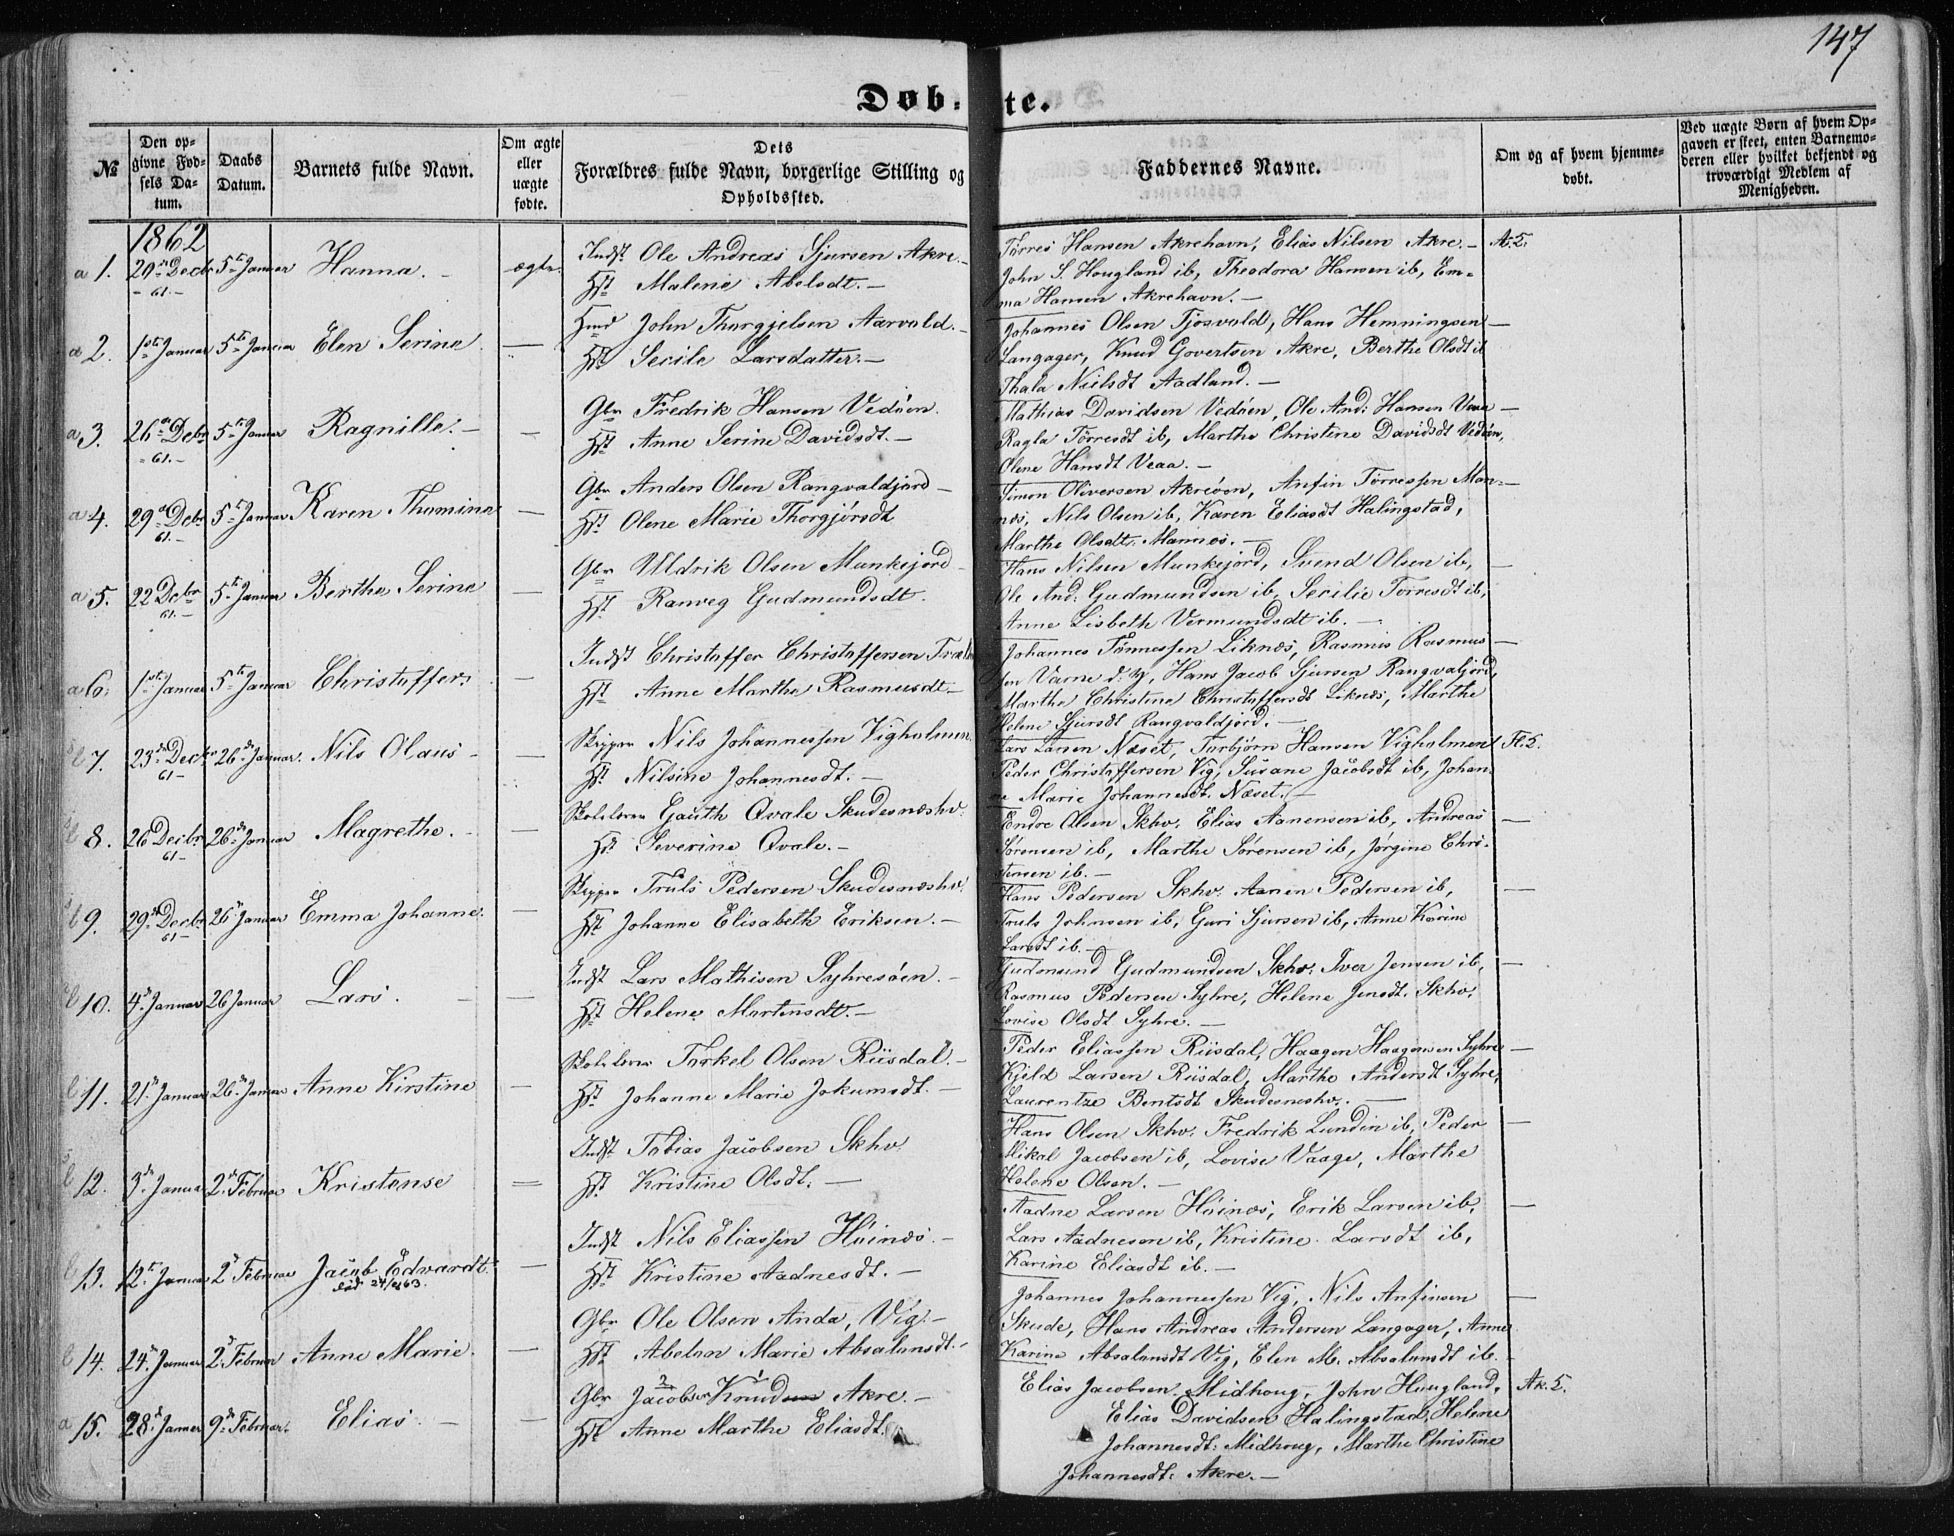 147
Døb-te.
№
Den op-
givne Fød-
sels Da-
tum.
Daabs
Datum.
Barnets fulde Navn.
Om ægte
eller
uægte
fødte.
Dets
Forældres fulde Navn, borgerlige Stilling og
Opholdssted.
Faddernes Navne.
Om og af hvem hjemme-
døbt.
Ved uægte Børn af hvem Op-
gaven er skeet, enten Barnemo-
deren eller hvilket bekjendt og
troværdigt Medlem af
Menigheden.
1862
a 1. 29de Decbr 61.- 5te Januar Hanna. - ægte.
Indst Ole Andreas Sjursen Akre.-
Hst Malene Abelsdt.-
Tørres Hansen Akrehavn, Elias Nilsen Akre.- A.T.
John S. Hougland ib, Theodora Hansen ib, Em-
ma Hansen Akrehavn.-
a 2. 1ste Januar 5te Januar Elen Serine. —
Hmd John Thorgjelsen Aarvold.-
Hst Secile Larsdatter.-
Johannes Olsen Tjosvold, Hans Hemningsen —
Langager, Knud Govertsen Akre, Berthe Olsdt ib
Thala Nielsdt Aadland.-
a 3. 26de Debr 61.- 5te Januar Ragnille.- —
Gbr Fredrik Hansen Vedøen.
Hst Anne Serine Davidsdt.-
Mathias Davidsen Vedøen, Ole And: Hansen Veaa —
Ragla Tørresdt ib, Marthe Christine Davidsdt Vedøen,
Olene Hansdt Veaa.-
a 4. 29de Debr 61.- 5te Januar Karen Thomine —
Gbr Anders Olsen Rangvaldjord —
Hst Olene Marie Thorgjørsdt
Simon Oliversen Akreøen, Anfin Tørressen Man- —
næs, Nils Olsen ib, Karen Eliasdt Halingstad,
Marthe Olsdtr. Mannes.-
a 5. 22 Debr 61.- 5te Januar Berthe Serine —
Gbr Uldrik Olsen Munkejord
Hst Ranveg Gudmundsdt.
Hans Nilsen Munkejord, Svend Olsen ib, —
Ole And: Gudmundsen ib, Secilie Tørresdt ib,
Anne Lisbeth Vermundsdt ib.-
a 6. 1ste Januar 5te Januar Christoffer. —
Indst Christoffer Christoffersen
Hst Anne Marthe Rasmusdt-
Johannes Tønnessen Liknæs, Rasmus Rasmus- —
sen Varne d. y, Hans Jacob Sjursen Rangvaljord,
Marthe Christine Christoffersdt Liknæs, Marthe
Helene Sjursdt Rangvaldjord.-
b 7. 23de Decbr 61- 26de Januar. Nils Olaus - —
Skipper Nils Johannessen Vigholmen
Hst Nilsine Johannesdt.-
Lars Larsen Næset, Torbjørn Hansen Vigholmen Fl.T.
Peder Christoffersen Vig, Susane Jacobsdt ib, Johan-
ne Marie Johannesdt. Næset.-
b 8. 26 Decbr 61- 26de Januar Magrethe. —
Gauth Qvale Skudesnæshv.
Hst Severine Qvale.-
Endre Olsen Skhv. Elias Aanensen ib, Andreas —
Sørensen ib, Marthe Sørensen ib, Jørgine Chri-
stensen ib.-
b 9. 29de Decbr 61- 26de Januar Emma Johanne. —
Skipper Truls Pedersen Skudesnæshv.
Hst Johanne Elisabeth Eriksen.-
Hans Pedersen Skhv. Aanen Pedersen ib, —
Truls Johnsen ib, Guri Sjursen ib, Anne Karine
Larsdt ib.-
b 10. 4de Januar 26 Januar Lars. — —
Indst Lars Mathisen Syhresøen.-
Hst Helene Martinsdt.-
Gudmund Gudmundsen Skhv. Iver Jensen ib, —
Rasmus Pedersen Syhre, Helene Jensdt. Skhv.
Lovise Olsdt Syhre.-
b 11. 21de Januar 26de Januar Anne Kirstine —
Torkel Olsen Riisdal.-
Hst Johanne Marie Jokumsdt.-
Peder Eliassen Riisdal, Haagen Haagensen Syhre —
Kjeld Larsen Riisdal, Marthe Andersdt Syhre,
Laurentze Bentsdt Skudesneshv.-
b 12. 3de Januar 2de Februar Kristense =
Indst Tobias Jacobsen Skhv.
Hst Kristine Olsdt.-
Hans Olsen Skhv. Fredrik Lundin ib, Peder —
Mikal Jacobsen ib, Lovise Vaage, Marthe
Helene Olsen.-
b 13. 12te Januar 2de Februar Jacob Edvardt. —
død 24/ 63.
Indst Nils Eliassen Høinæs.-
Hst Kristine Aadnesdt.-
Aadne Larsen Høinæs, Erik Larsen ib, —
Lars Aadnesen ib, Kristine Larsdt ib,
Karine Eliasdt ib.-
b 14. 24de Januar 2de Februar Anne Marie. —
Gbr Ole Olsen Anda, Vig.-
Hst Abelon Marie Absalonsdt.-
Johannes Johannessen Vig, Nils Anfinsen —
Skude, Hans Andreas Andersen Langager, Anne
Karine Absalonsdt Vig, Elen M. Absalonsdt ib.
a 15. 28de Januar 9de Februar. Elias. - —
Gbr Jacobsen Knudsen Akre.-
Hst Anne Marthe Eliasdt.
Elias Jacobsen Midhoug, John Hougland, Ak.T.
Elias Davidsen Halingstad, Helene
Johannesdt: Midhoug, Marthe Christine
Johannesdt: Akre.-